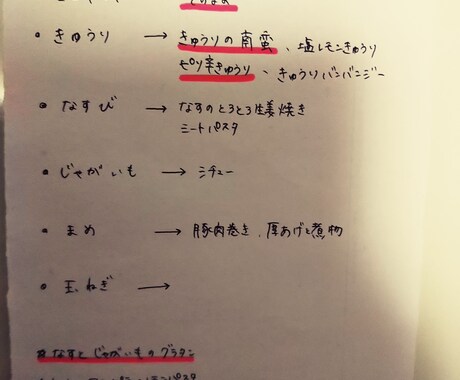 • きゅうり → きゅうりの南蛮、塩レモンきゅうり
ピリ辛きゅうり、きゅうりバンバンジー
• なすび → なすのとろとろ生姜焼き
ミートパスタ
• じゃがいも → シチュー
• まめ → 豚肉巻き、厚あげと煮物
• 玉ねぎ →
# なすとじゃがいものグラタン